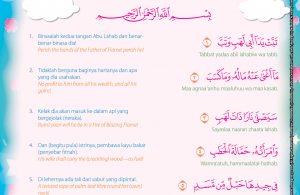 بِسْمِ اللهِ الرَّحْمٰنِ الرَّحِيْمِ
1. Binasalah kedua tangan Abu Lahab dan benar-
benar binasa dia!
Perish the hands of the Father of Flame! perish he!
تَبَّتْ يَدَآ اَبِيْ لَهَبٍ وَّتَبَّ
Tabbat yadaa abii lahabiw wa tabb.
2. Tidaklah berguna baginya hartanya dan apa
yang dia usahakan.
No profit to him from all his wealth, and all his
gains!
مَآ اَغْنٰى عَنْهُ مَالُهٗ وَمَا كَسَبَ
Maa agnaa 'anhu maaluhuu wa maa kasab.
3. Kelak dia akan masuk ke dalam api yang
bergejolak (neraka).
Burnt soon will he be in a Fire of Blazing Flame!
سَيَصْلٰى نَارًا ذَاتَ لَهَبٍ
Sayaslaa naaran zaata lahab.
4. Dan (begitu pula) istrinya, pembawa kayu bakar
(penyebar fitnah).
His wife shall carry the (crackling) wood – as fuel!
وَامْرَاَتُهٗ حَمَّالَةَ الْحَطَبِ
Wamra'atuh, hammaalatal-hathab.
5. Di lehernya ada tali dari sabut yang dipintal.
A twisted rope of palm-leaf fibre round her (own)
neck!
فِيْ جِيْدِهَا حَبْلٌ مِّنْ مَّسَدٍ